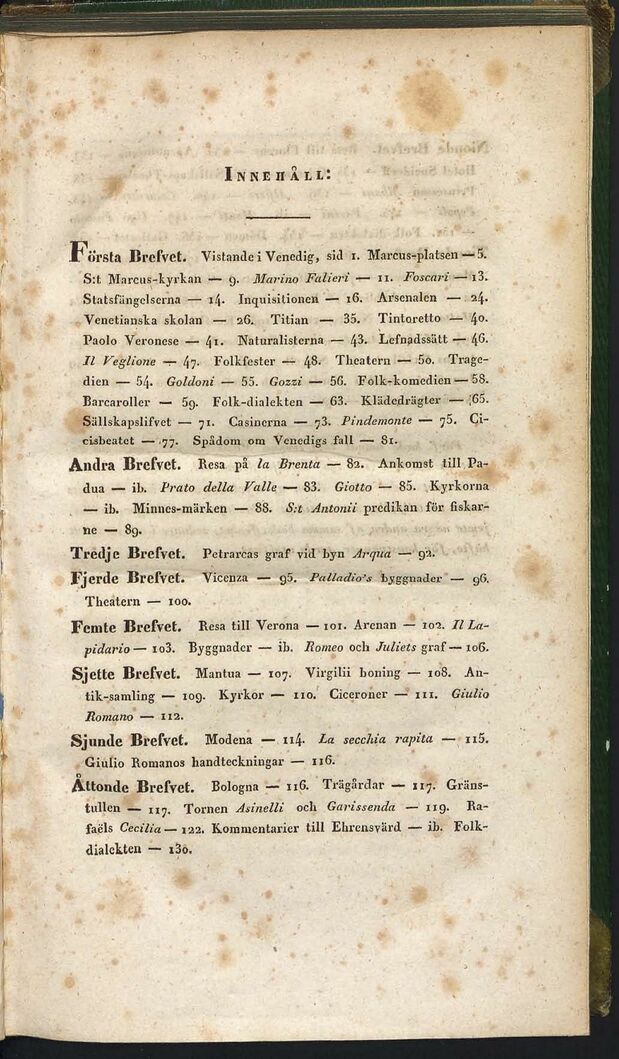 INNEHÅLL:
Första Brefvet. Vistande i Venedig, sid 1. Marcus-platsen — 5.
S:t Marcus-kyrkan — 9. Marino Falieri — 11. Foscari — 13.
Statsfängelserna — 14. Inquisitionen — 16. Arsenalen — 24.
Venetianska skolan — 26. Titian — 35. Tintoretto — 40.
Paolo Veronese — 41. Naturalisterna — 43. Lefnadssätt — 46.
Il Veglione — 47. Folkfester — 48. Theatern — 50. Trage-
dien — 54. Goldoni — 55. Gozzi — 56. Folk-komedien — 58.
Barcaroller — 59. Folk-dialekten — 63. Klädedrägter — 65.
Sällskapslifvet — 71. Casinerna — 73. Pindemonte — 75. Ci-
cisbeatet — 77. Spådom om Venedigs fall — 81.
Andra Brefvet. Resa på la Brenta — 82. Ankomst till Pa-
dua — ib. Prato della Valle — 83. Giotto — 85. Kyrkorna
— ib. Minnes-märken — 88. S:t Antonii predikan för fiskar-
ne — 89.
Tredje Brefvet. Petrarcas graf vid byn Arqua — 92.
Fjerde Brefvet. Vicenza — 95. Palladio's byggnader — 96.
Theatern — 100.
Femte Brefvet. Resa till Verona — 101. Arenan — 102. Il La-
pidario — 103. Byggnader — ib. Romeo och Juliets graf — 106.
Sjette Brefvet. Mantua — 107. Virgilii boning — 108. An-
tik-samling — 109. Kyrkor — 110. Ciceroner — 111. Giulio
Romano — 112.
Sjunde Brefvet. Modena — 114. La secchia rapita — 115.
Giulio Romanos handteckningar — 116.
Åttonde Brefvet. Bologna — 116. Trägårdar — 117. Gräns-
tullen — 117. Tornen Asinelli och Garissenda — 119. Ra-
faëls Cecilia — 122. Kommentarier till Ehrensvärd — ib. Folk-
dialekten — 130.